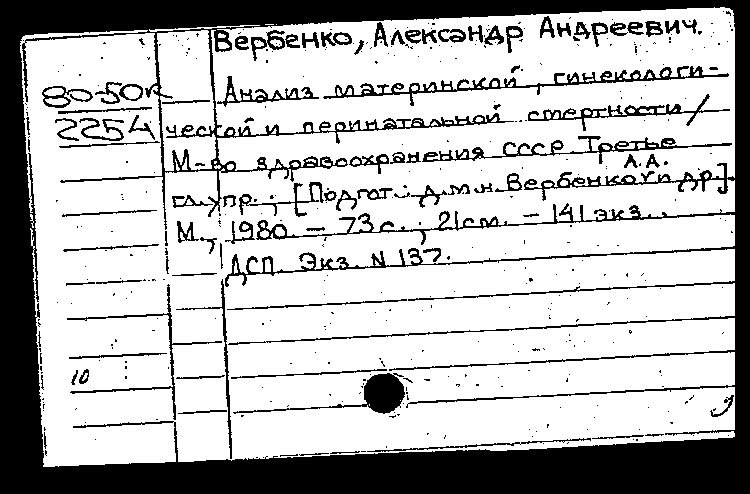 Вербенко, Александр Андреевич.
80-50к Анализ материнской, гинекологи-
2254 ческой и перинатальной смертности/
М-во здравоохранения СССР Третье
гл. упр.; [Подгот.: д.м.н. Вербенко А.А. и др.].
М., 1980. – 73 с.; 21 см. – 141 экз..
ДСП. Экз. N 137.
10